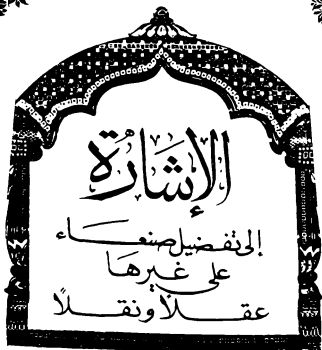 الإشارة
إلى تفضيل صنعاء
على غيرها
عقلاً ونقلاً